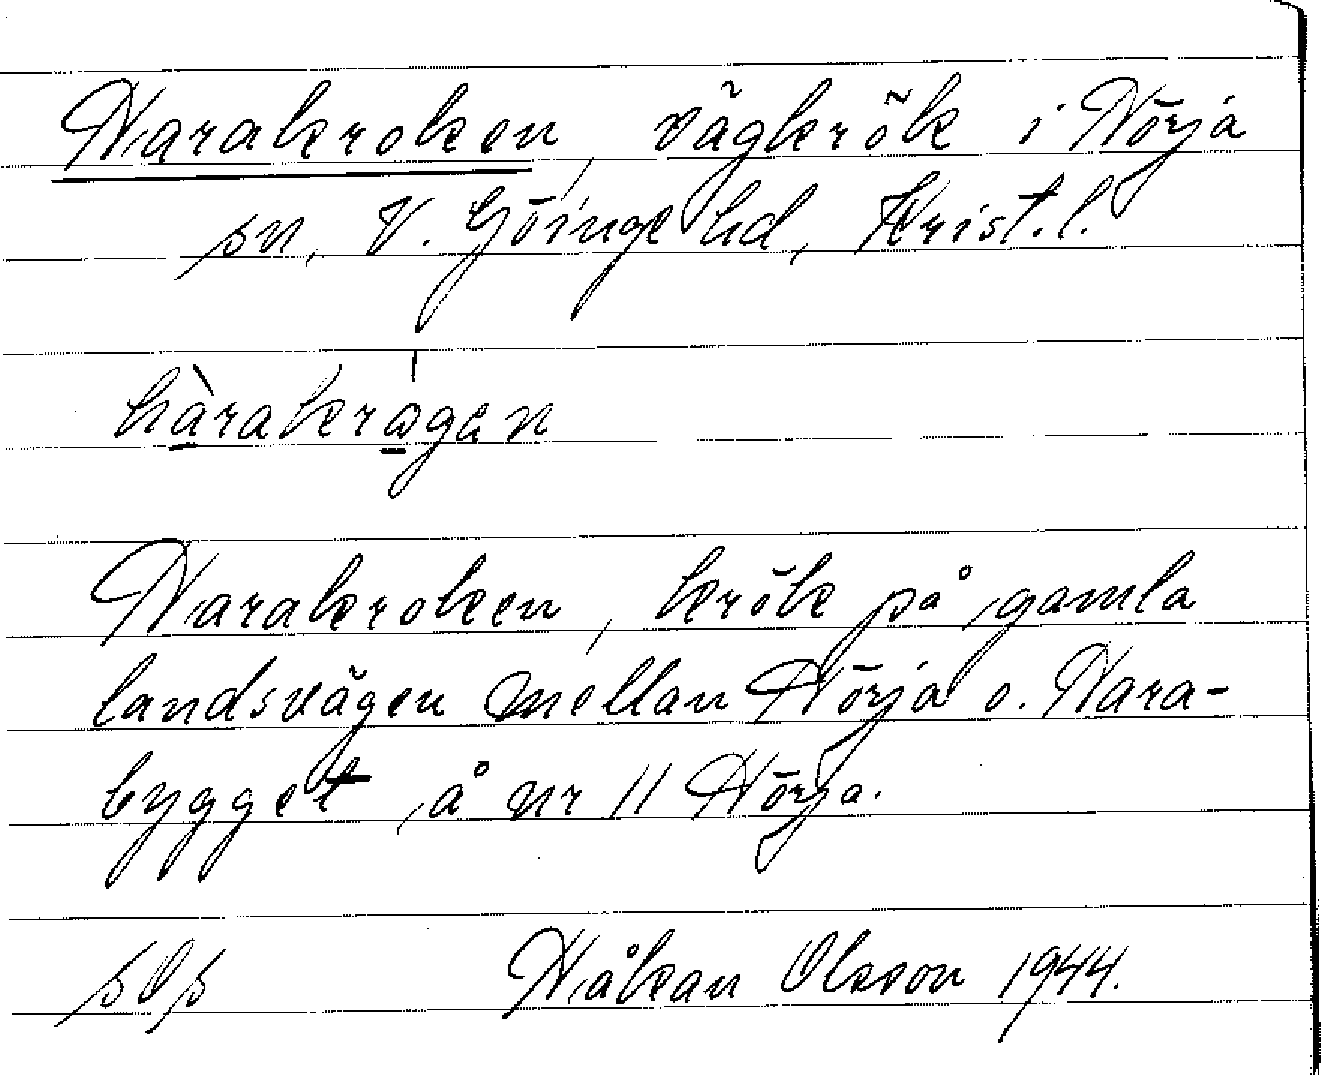 Harakroken, vägkrök i Hörja
sn, V. Göinge hd, Krist.l.
hàrakrogan
Harakroken, krök på gamla
landsvägen mellan Hörja o. Hara-
bygget, å nr 11 Hörja.
Håkan Olsson 1944.